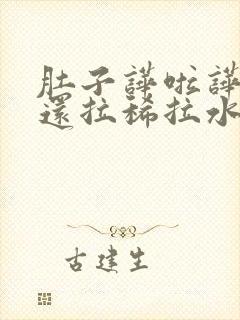 肚子譁啦譁
還拉稀拉水
古建生